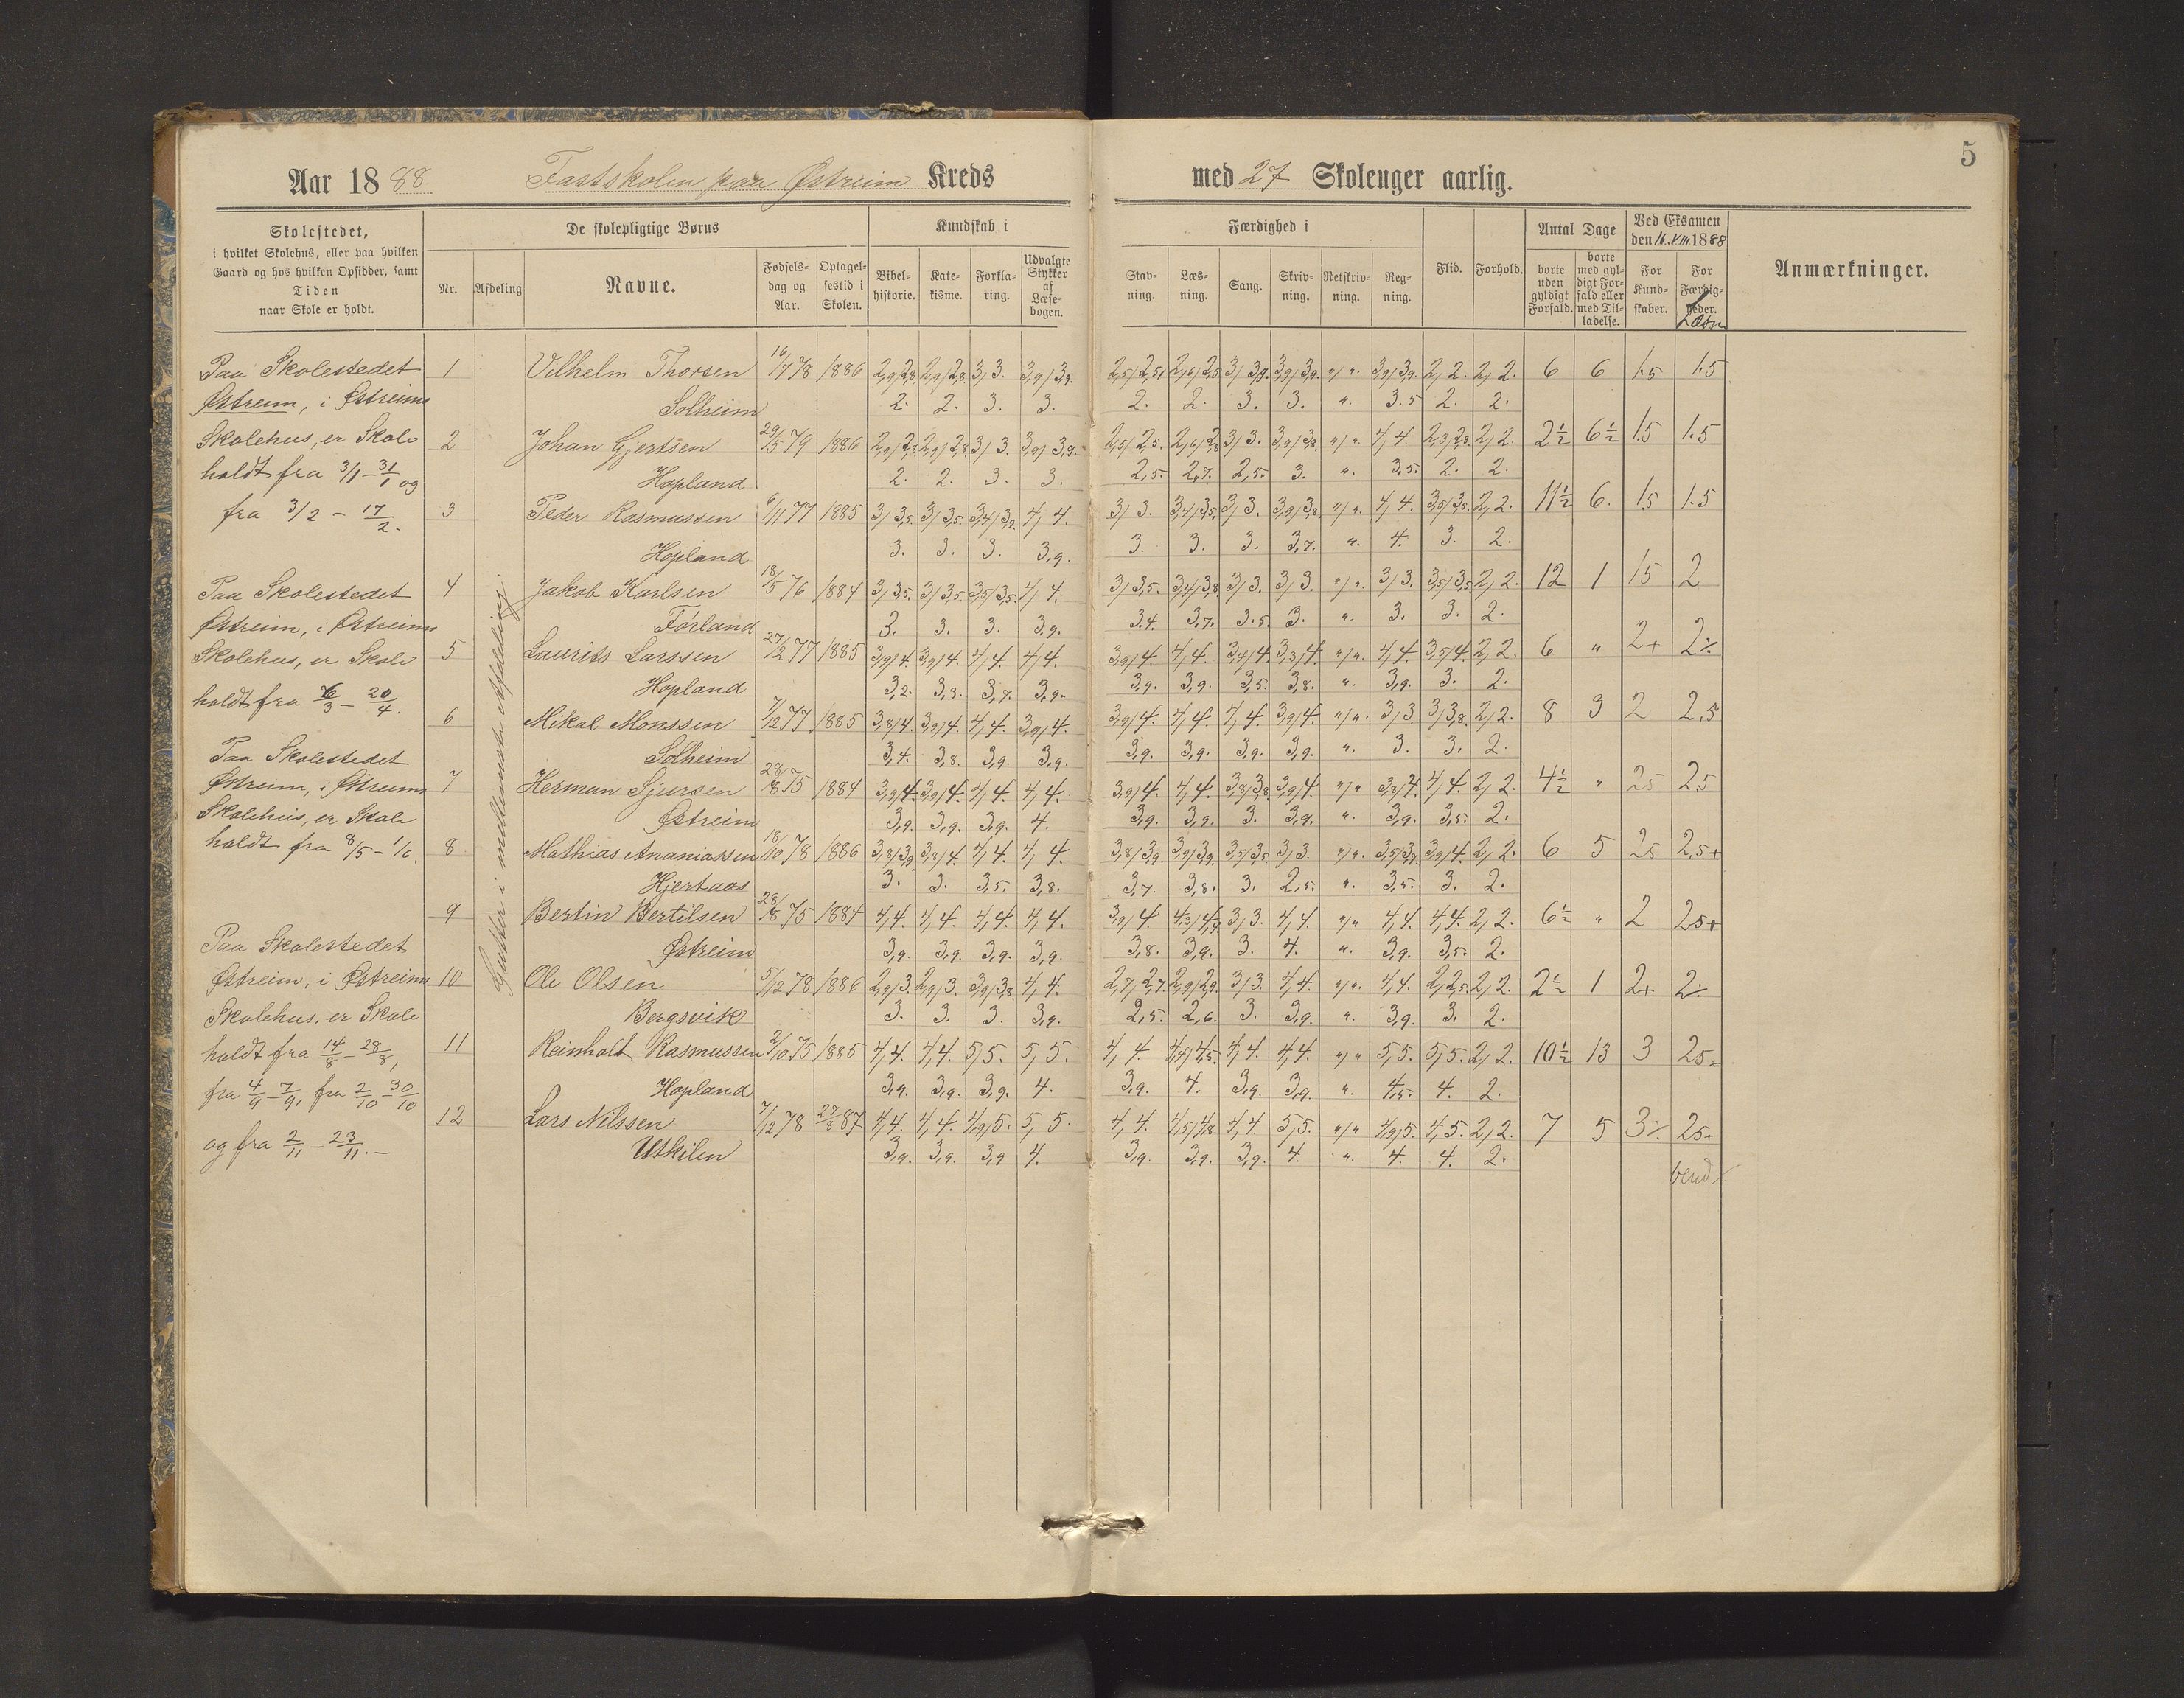 5
Aar 1888 Fastskolen paa Østreim Kreds med 27 Skolenger aarlig.
Skolestedet,
i hvilket Skolehus, eller paa hvilken
Gaard og hos hvilken Opsidder, samt
Tiden
naar Skole er holdt.
De skolepligtige Børns
Nr.
Afdeling
Navne.
Fødsels-
dag og
Aar.
Optagel-
sestid i
Skolen.
Kundskab i
Bibel-
historie.
Kate-
kisme.
Forkla-
ring.
Udvalgte
Stykker
af
Læse-
bogen.
Færdighed i
Stav-
ning.
Læs-
ning.
Sang.
Skriv-
ning.
Retskriv-
ning.
Reg-
ning.
Flid.
Forhold.
Antal Dage
borte
uden
gyldigt
Forfald.
borte
med gyl-
digt For-
fald eller
med Til-
ladelse.
Ved Eksamen
den 16.VIII 1888
For
Kund-
skaber.
For
Færdig-
heder.
Læsn
Anmærkninger.
Paa Skolestedet
Østreim, i Østreims
Skolehus, er Skole
holdt fra 3/1 - 31/1 og
fra 3/2 - 17/2.
Paa Skolestedet
Østreim, i Østreims
Skolehus, er Skole
holdt fra 6/3 - 20/4.
Paa Skolestedet
Østreim, i Østreims
Skolehus, er Skole
holdt fra 8/5 - 1/6.
Paa Skolestedet
Østreim, i Østreims
Skolehus, er Skole
holdt fra 14/8 - 28/8,
fra 4/9 - 7/9, fra 2/10 - 30/10
og fra 2/11 - 23/11. -
Gutter i mellemste Afdeling.
1 Vilhelm Thorsen 16/7 78 1886 2,9/2,8. 2,9/2,8. 3/3. 3,9/3,9. 2,5/2,5. 2,6/2,5. 3/3,9. 3,9/3,9. "/". 3,9/3,9. 2/2. 2/2. 6 6 1.5 1.5
Solheim 2. 2. 3. 3. 2. 2. 3. 3. ". 3.5 2. 2.
2 Johan Gjertsen 29/5 79 1886 2,9/2,8. 2,9/2,8. 3/3. 3,9/3,9. 2,5/2,5. 2,6/2,8. 3/3. 3,9/3,8. "/". 4/4. 2,3/2,3. 2/2. 2½ 6½ 1.5 1.5
Hopland 2. 2. 3. 3. 2,5. 2,7. 2,5. 3. ". 3,5. 2. 2.
3 Peder Rasmussen 6/11 77 1885 3/3,5. 3/3,5. 3,4/3,9. 4/4. 3/3. 3,4/3,5. 3/3. 3,9/3,8. "/". 4/4. 3,5/3,5. 2/2. 11½ 6. 1.5 1.5
Hopland 3. 3. 3. 3,9. 3. 3. 3. 3,7. ". 4. 3. 2.
4 Jakob Karlsen 18/5 76 1884 3/3,5. 3/3,5. 3,5/3,5. 4/4. 3/3,5. 3,4/3,8. 3/3. 3/3. "/". 3/3. 3,5/3,5. 2/2. 12 1 1.5 2
Førland 3. 3. 3. 3,9. 3.4. 3,7. 3.5. 3. ". 3. 3. 2.
5 Laurits Larssen 27/12 77 1885 3,9/4. 3,9/4. 4/4. 4/4. 3,9/4. 4/4. 3,4/4. 3,3/4. "/". 4/4. 3,5/4. 2/2. 6 " 2+ 2÷
Hopland 3,2. 3,3. 3,7. 3,9. 3,9. 3,9. 3,5. 3,8. ". 3,9. 3. 2.
6 Mikal Monssen 7/12 77 1885 3,8/4. 3,9/4. 4/4. 3,9/4. 3,9/4. 4/4. 4/4. 3,9/4. "/". 3/3. 3/3,8. 2/2. 8 3 2 2,5
Solheim 3,4. 3,8. 3,9. 3,9. 3,9. 3,9. 3,9. 3,9. ". 3. 3. 2.
7 Herman Sjursen 28/8 75 1884 3,9/4. 3,9/4. 4/4. 4/4. 3,9/4. 4/4. 3,8/3,8. 3,9/4. "/". 3,8/4. 4/4. 2/2. 4½ " 25 25
Østreim 3,9. 3,9. 3,9. 4. 3,9. 3,9. 3. 3,9. ". 3,9. 3,5. 2.
8 Mathias Ananiassen 18/10 78 1886 3,8/3,9. 3,8/4. 4/4. 4/4. 3,8/3,9. 3,9/3,9. 3,5/3,5. 3/3. "/". 3,5/3,7. 3,9/4. 2/2. 6 5 25 2,5+
Hjertaas 3. 3. 3,5. 3,8. 3,7. 3,8. 3. 2,5. ". 3,5. 3. 2.
9 Bertin Bertilsen 28/8 75 1884 4/4. 4/4. 4/4. 4/4. 3,9/4. 4,3/4,4. 3/3. 4/4. "/" 4/4. 4/4. 2/2. 6½ " 2 25+
Østreim 3,9. 3,9. 3,9. 3,9. 3,8. 3,9. 3. 4. ". 3,9. 3,5. 2.
10 Ole Olsen 5/12 78 1886 2,9/3. 2,9/3. 3,9/3,8. 4/4. 2,7/2,7. 2,9/2,9. 3/3. 4/4. "/". 4/4. 2/2,5. 2/2. 2½ 1 2+ 2÷
Bergsvik 3. 3. 3. 3,9. 2,5. 2,6. 3. 3,9. ". 3,9. 3. 2.
11 Reinholt Rasmussen 2/10 75 1885 4/4. 4/4. 5/5. 5/5. 4/4. 4,4/4,5. 4/4. 4/4. "/" 5/5. 5/5. 2/2. 10½ 13 3 25÷
Hopland 3,9. 3,9. 3,9. 4. 3,9. 4. 3,9. 3,9. ". 4,5. 4. 2.
12 Lars Nilssen 7/12 78 27/8 87 4/4. 4/4. 4,9/5. 5/5. 4/4. 4,5/4,8 4/4. 5/5. "/" 4,9/5. 4/5. 2/2. 7 5 3÷ 25+
Utkilen 3,9. 3,9. 3,9 4. 3,9. 3,9. 3,9. 4. ". 4. 4. 2.
vend